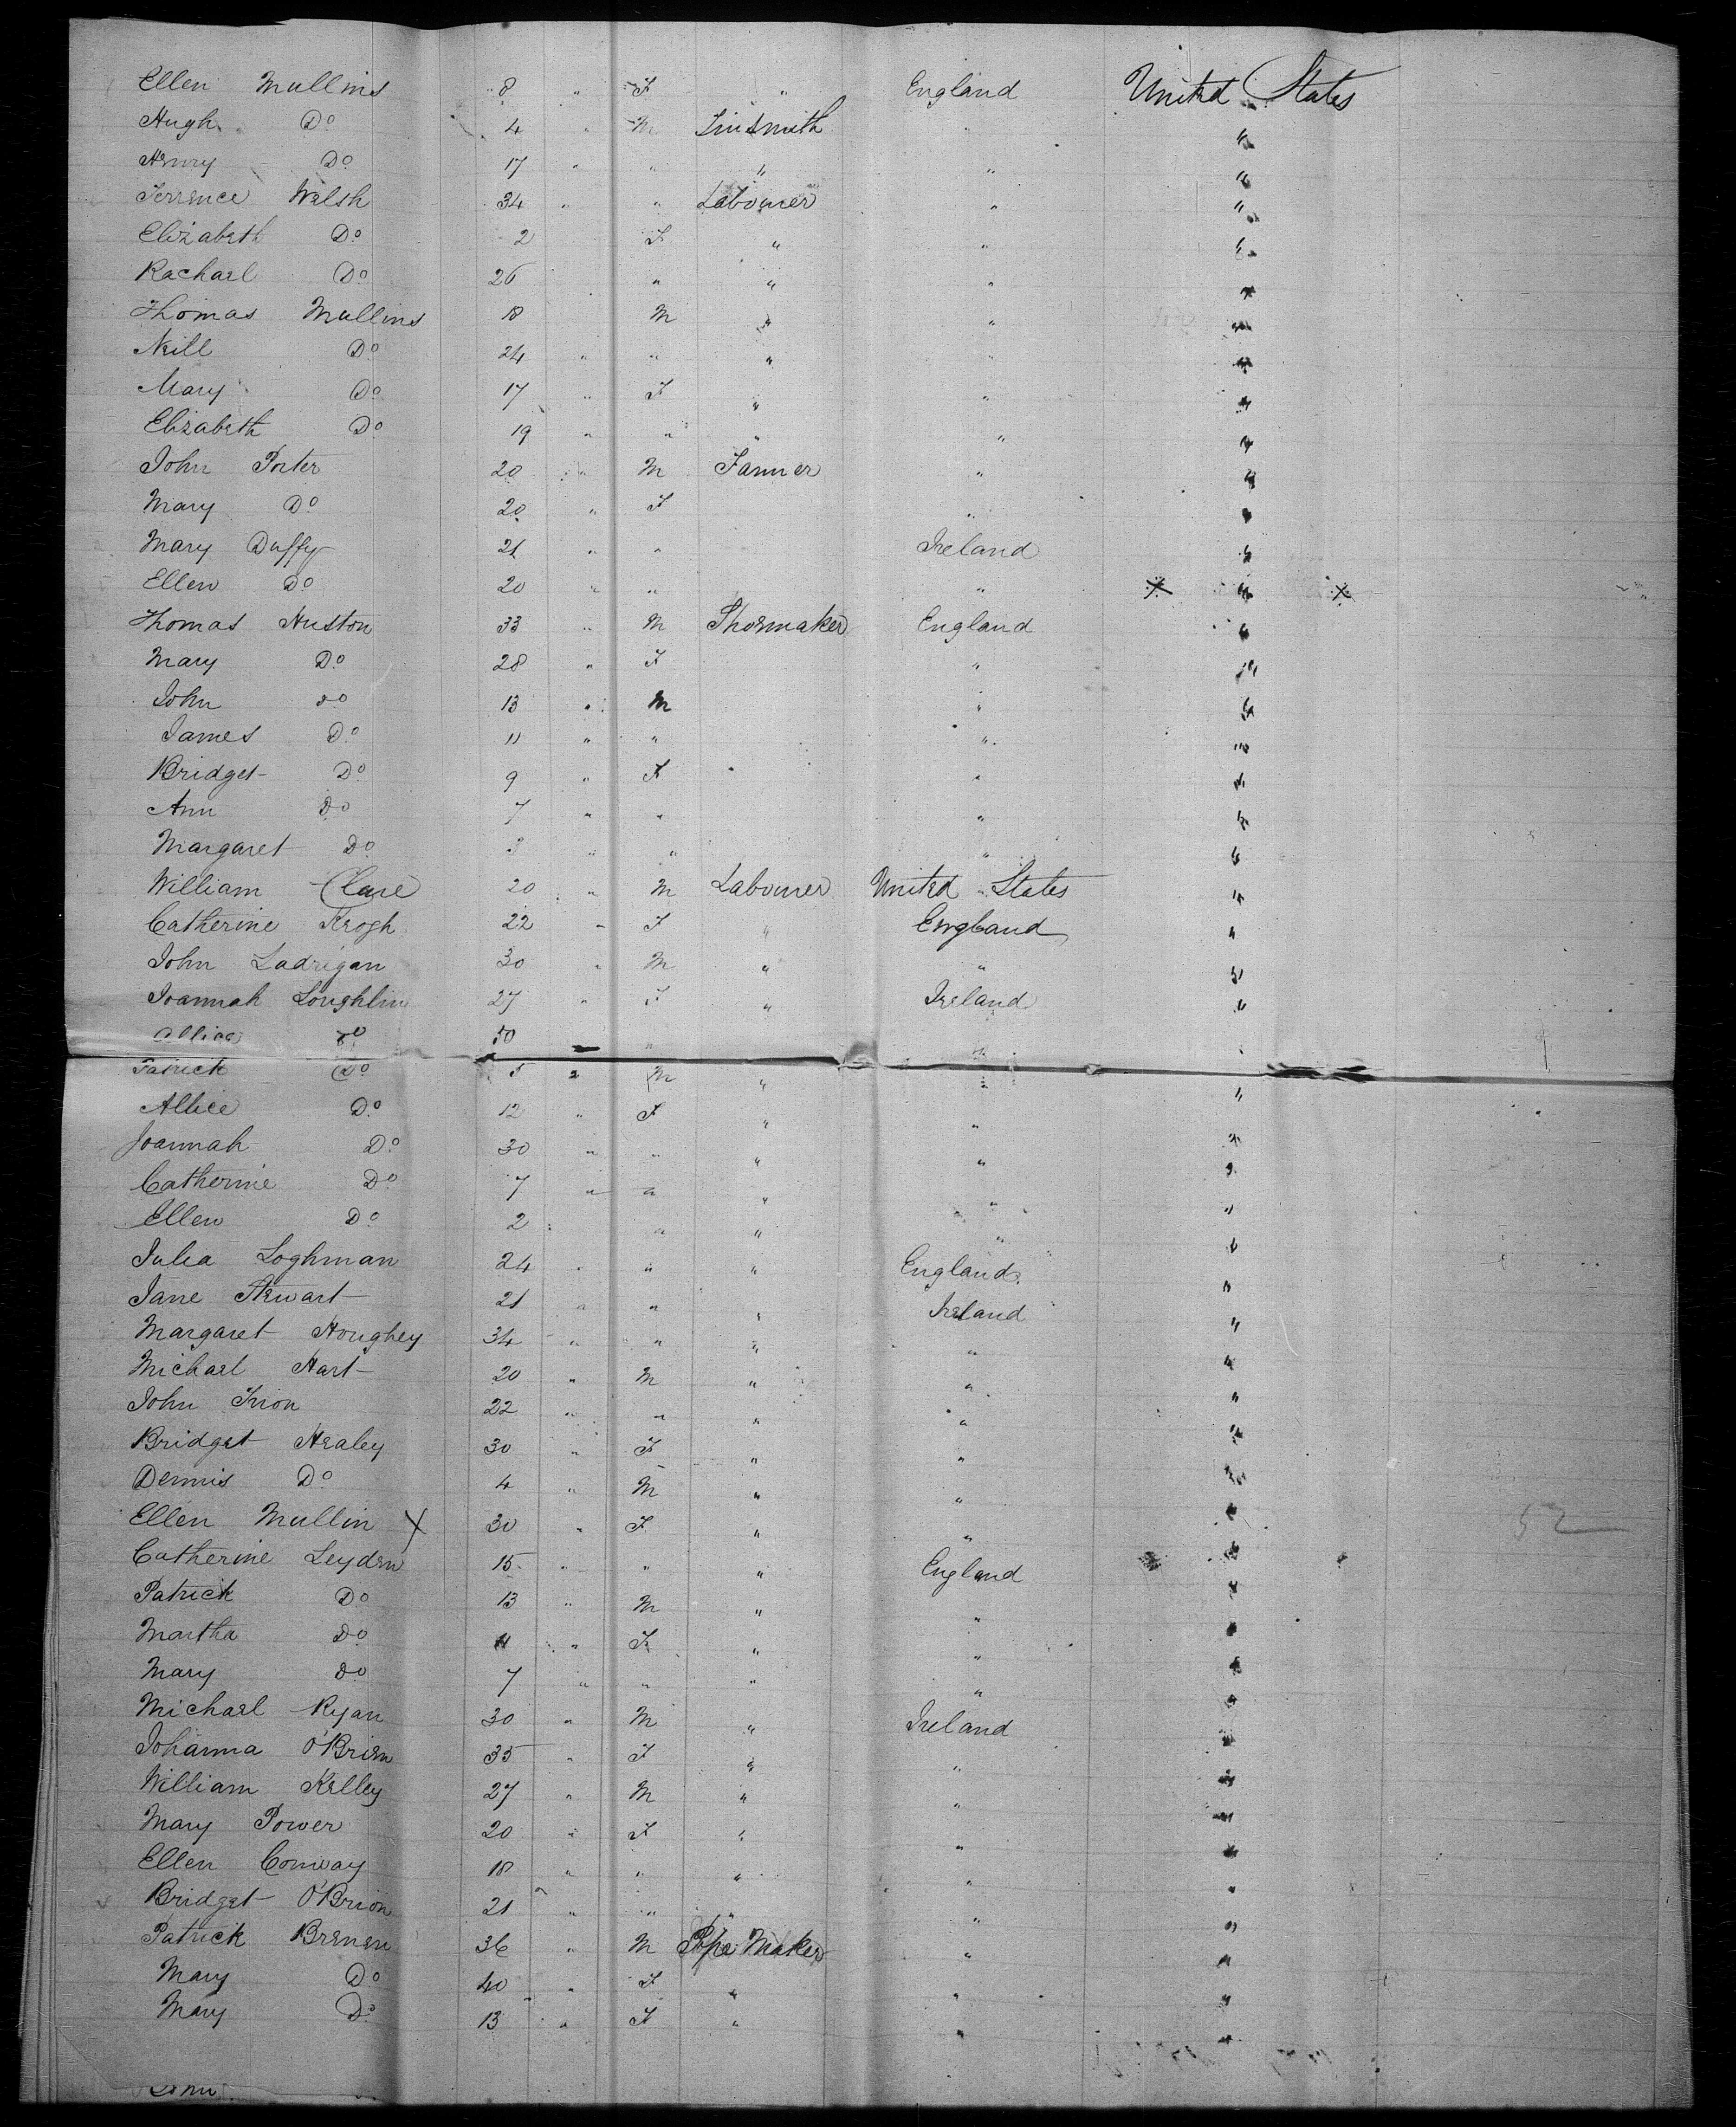 Ellen Mullins 8 " F " England United States
Hugh Do 4 " M Tinsmith " "
Henry Do 17 " " " " "
Terrence Walsh 34 " " Labourer " "
Elizabeth Do 2 F " " "
Rachael Do 26 " " " "
Thomas Mullins 18 M " " "
Neill Do 24 " " " " "
Mary Do 17 " F " " "
Elizabeth Do 19 " " " " "
John Porter 20 " M Farmer " "
Mary Do 20 " F " "
Mary Duffy 21 " " Ireland "
Ellen Do 20 " " " x " x
Thomas Huston 33 " M Shoemaker England "
Mary Do 28 " F " "
John do 13 " M " "
James Do 11 " " " "
Bridget Do 9 " F " "
Ann Do 7 " " " "
Margaret Do 3 " " " "
William Clare 20 " M Labourer United States "
Catherine Keogh 22 " F " England "
John Ladrigan 30 " M " " "
Joannah Loughlin 27 " F " Ireland "
Allice do 50 " " "
Patrick Do " M " " "
Allice Do 12 " F " " "
Joannah Do 30 " " " " "
Catherine Do 7 " " " " "
Ellen Do 2 " " " " "
Julia Loghman 24 " " " England "
Jane Stewart 21 " " " Ireland "
Margaret Houghey 34 " " " " "
Michael Hart 20 " M " " "
John 22 " " " " "
Bridget Healey 30 " F " " "
Dennis Do 4 " M " " "
Ellen Mullin x 30 " F " " " 52
Catherine Leyden 15 " " " England "
Patrick Do 13 " M " " "
Martha Do 11 " F " " "
Mary do 7 " " " " "
Michael Ryan 30 " M " Ireland "
Johanna O'Brien 35 " F " " "
William Kelley 27 " M " " "
Mary Power 20 " F " " "
Ellen Conway 18 " " " " "
Bridget O'Brion 21 " " " " "
Patrick Brenen 36 " M Pipe Maker " "
Mary Do 40 " F " " "
Mary Do 13 " F " " "